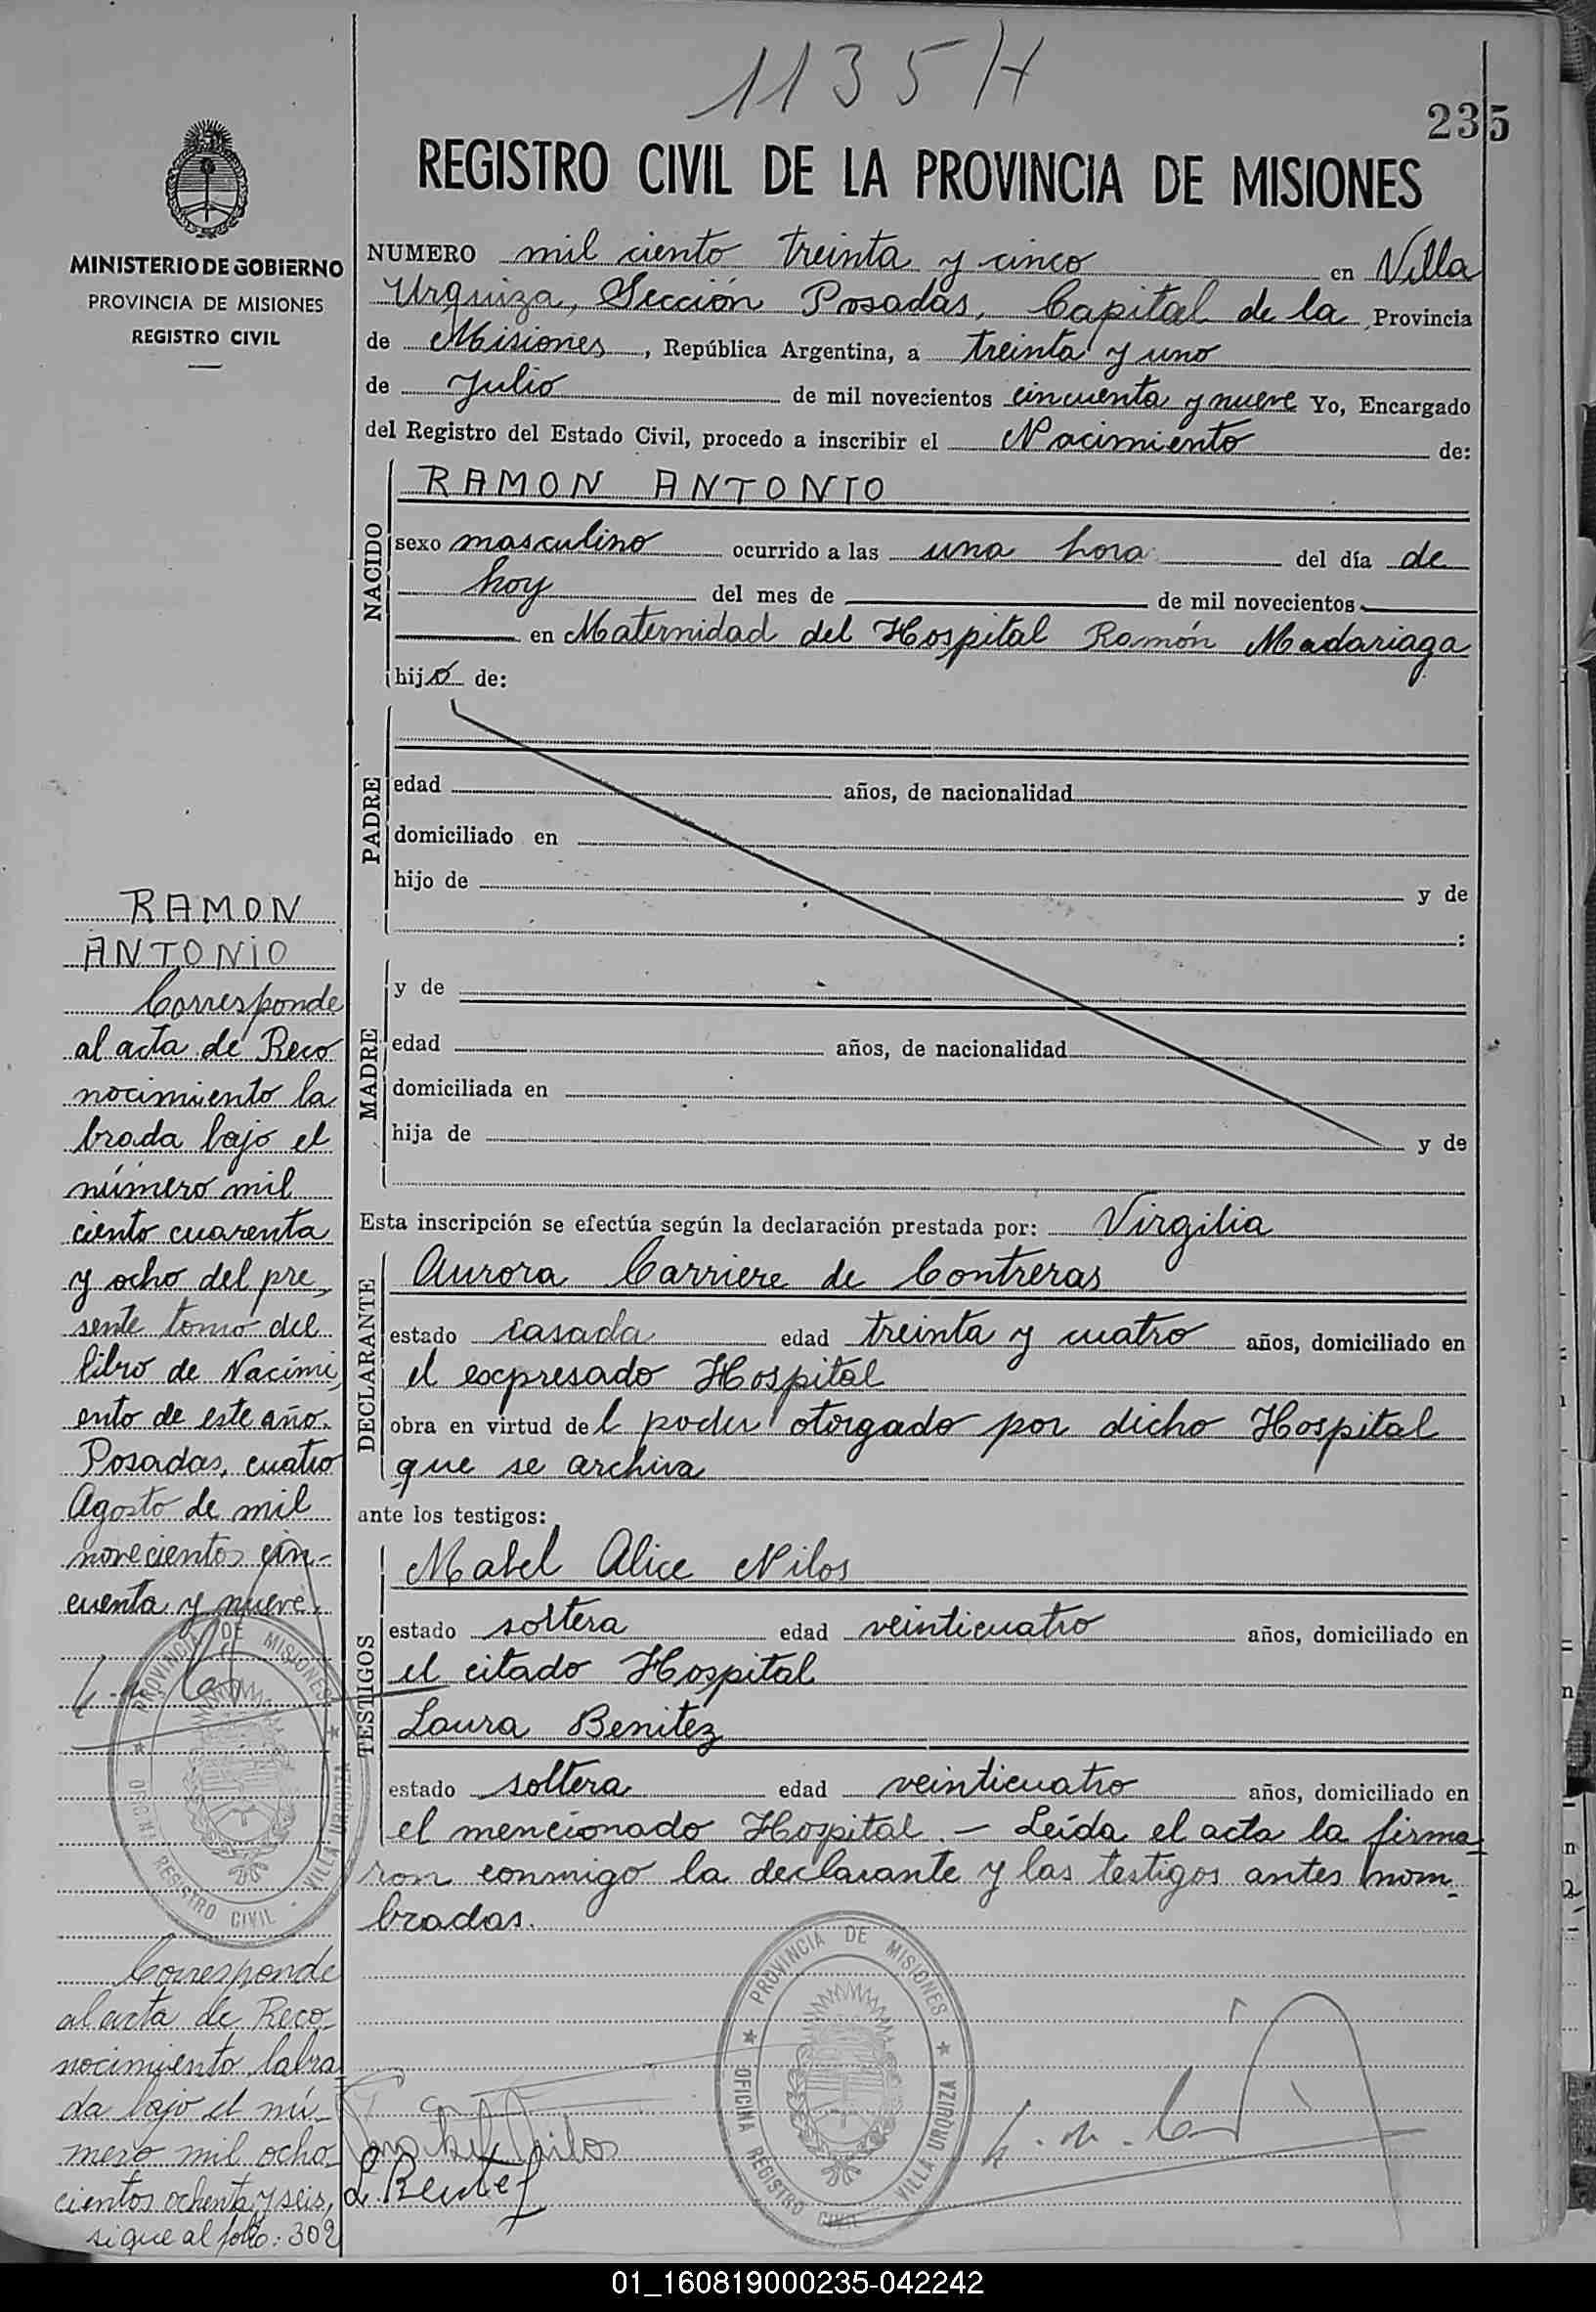 1135 H
235
REGISTRO CIVIL DE LA PROVINCIA DE MISIONES
MINISTERIO DE GOBIERNO
PROVINCIA DE MISIONES
REGISTRO CIVIL
NUMERO mil ciento treinta y cinco en Villa
Urquiza, Sección Posadas, Capital de la Provincia
de Misiones, República Argentina, a treinta y uno
de Julio de mil novecientos cincuenta y nueve Yo, Encargado
del Registro del Estado Civil, procedo a inscribir el Nacimiento de:
NACIDO
RAMON ANTONIO
sexo masculino ocurrido a las una hora del día de
hoy del mes de de mil novecientos
en Maternidad del Hospital Ramón Madariaga
hijo de:
PADRE
edad años, de nacionalidad
domiciliado en
hijo de y de
:
MADRE
y de
edad años, de nacionalidad
domiciliada en
hija de y de
Esta inscripción se efectúa según la declaración prestada por: Virgilia
DECLARANTE
Aurora Carriere de Contreras
estado casada edad treinta y cuatro años, domiciliado en
el expresado Hospital
obra en virtud del poder otorgado por dicho Hospital
que se archiva
ante los testigos:
TESTIGOS
Mabel Alice Nilos
estado soltera edad veinticuatro años, domiciliado en
el citado Hospital
Laura Benitez
estado soltera edad veinticuatro años, domiciliado en
el mencionado Hospital. — Leída el acta la firma
ron conmigo la declarante y las testigos antes nom-
bradas.
RAMON
ANTONIO
Corresponde
al acta de Reco
nocimiento la
brada bajo el
número mil
ciento cuarenta
y ocho del pre
sente tomo del
libro de Nacimi
ento de este año.
Posadas, cuatro
Agosto de mil
novecientos cin-
cuenta y nueve.
PROVINCIA DE MISIONES
OFICINA REGISTRO CIVIL - VILLA URQUIZA
Corresponde
al acta de Reco-
nocimiento labra
da bajo el nú-
mero mil ocho-
cientos ochenta y seis,
sigue al folio: 302
PROVINCIA DE MISIONES
OFICINA REGISTRO CIVIL VILLA URQUIZA
L. Benitez
01_160819000235-042242